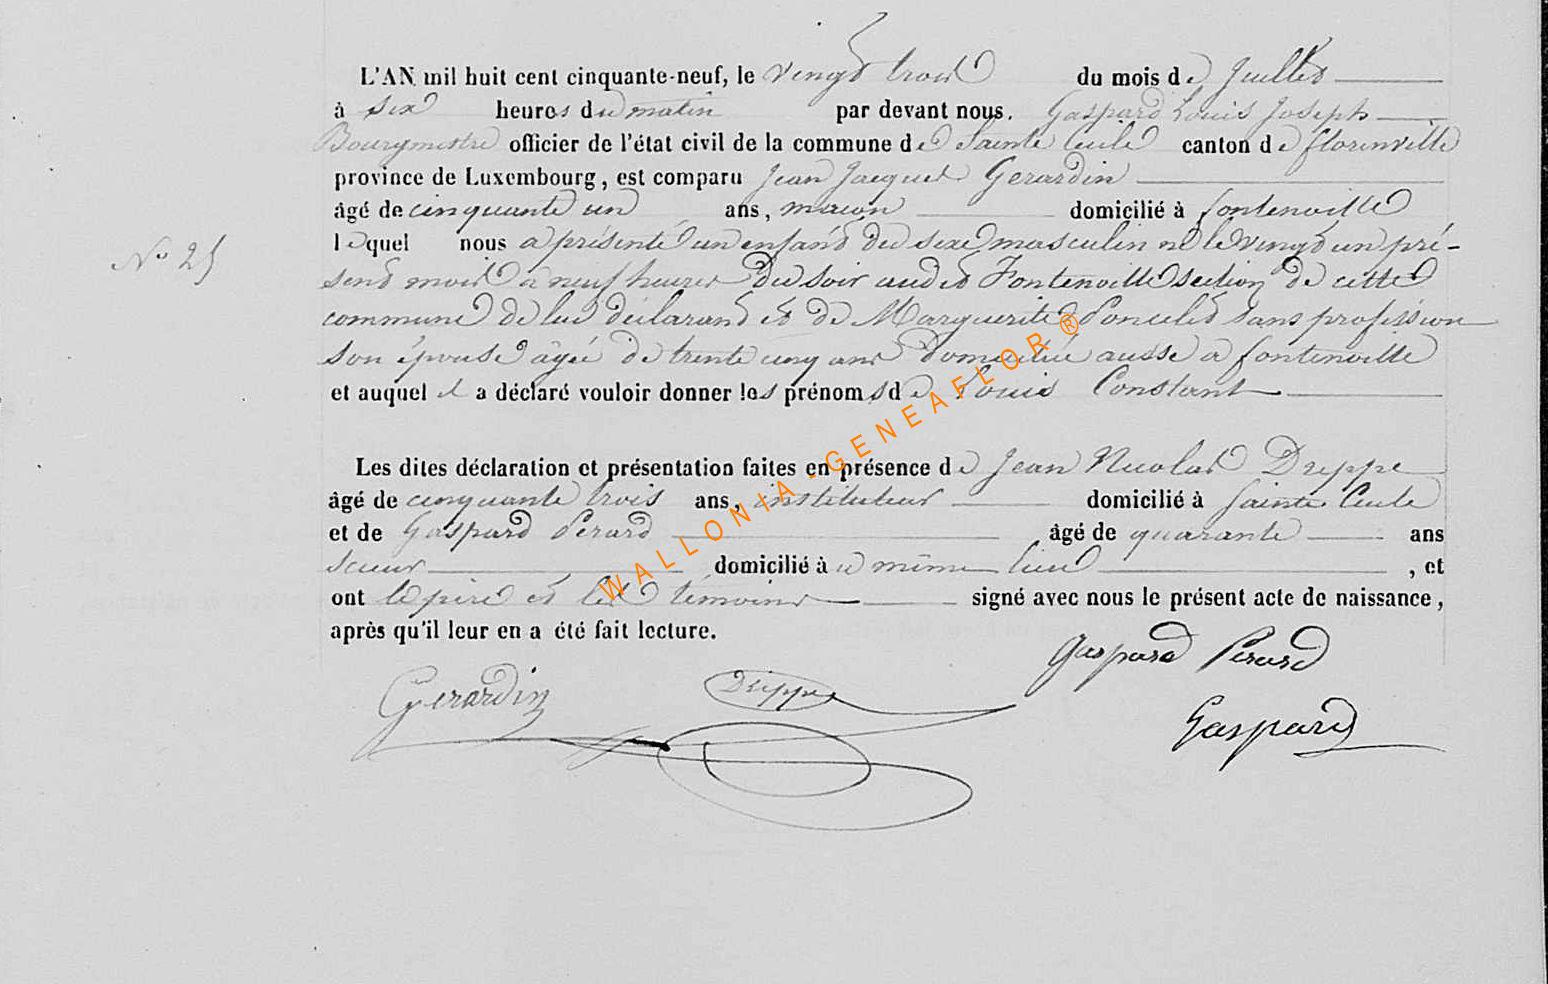 L'AN mil huit cent cinquante-neuf, le vingt trois du mois de Juillet
à six heures du matin par devant nous. Gaspard Louis Joseph
Bourgmestre officier de l'état civil de la commune de Sainte Cecile canton de florenville
province de Luxembourg, est comparu Jean Jacques Gerardin
âgé de cinquante un ans, macon domicilié à fontenoille
lequel nous a présenté un enfant du sexe masculin né le vingt un pré-
N° 25
sent mois à neuf heures du soir audit Fontenoille section de cette
commune de lui déclarant et de Marguerite Poncelet sans profession
son épouse âgée de trente cinq ans domiciliée aussi a fontenoille
et auquel il a déclaré vouloir donner les prénoms de Louis Constant
Les dites déclaration et présentation faites en présence de Jean Nicolas Dreppe
âgé de cinquante trois ans, instituteur domicilié à Sainte Cecile
et de Gaspard Perard âgé de quarante ans
scieur domicilié à u même lieu , et
ont le père et les témoins signé avec nous le présent acte de naissance,
après qu'il leur en a été fait lecture.
Gaspard Perard
Gerardin Dreppe
Gaspard
WALLONIA-GENEAFLOR®